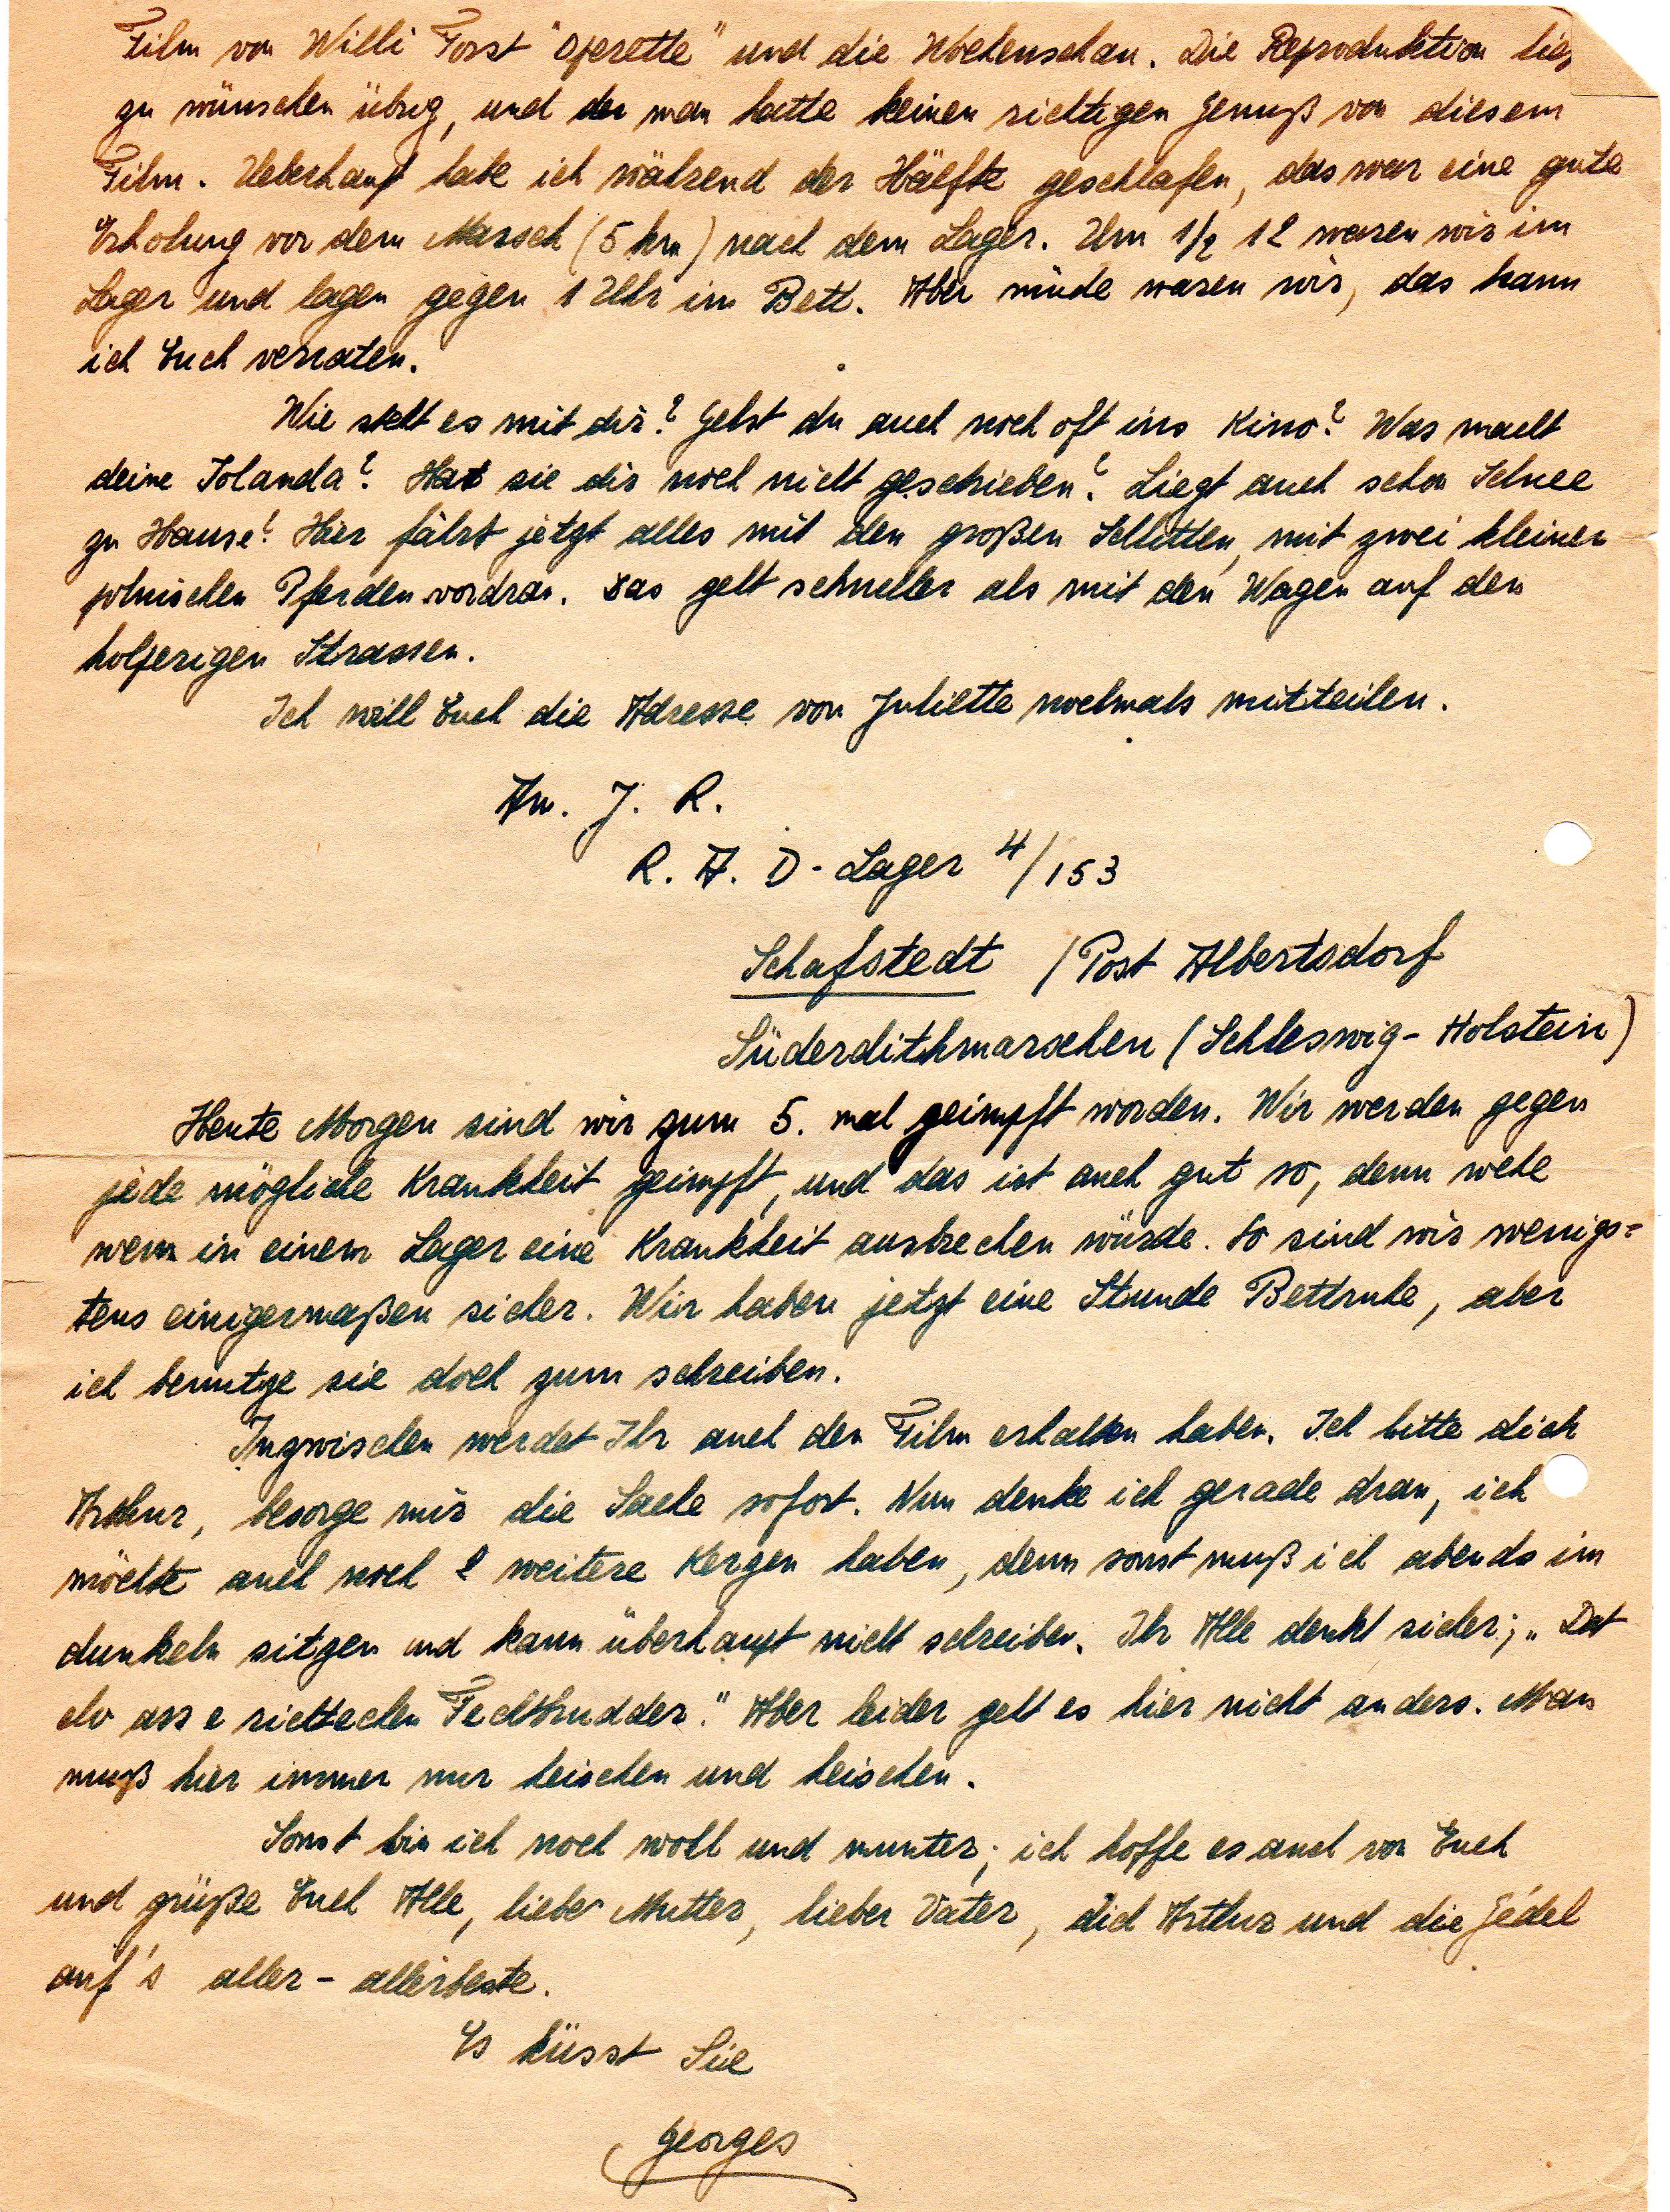 Film von Willi Forst "Operette" und die Wochenschau. Die Reproduktion ließ
zu wünschen übrig, und der man hatte keinen richtigen Genuß von diesem
Film. Ueberhaupt habe ich während der Hälfte geschlafen, das war eine gute
Erholung vor dem Marsch (5 km) nach dem Lager. Um 1/2 12 waren wir im
Lager und lagen gegen 1 Uhr im Bett. Aber müde waren wir, das kann
ich Euch verraten.
Wie steht es mit dir? Gehst du auch noch oft ins Kino? Was macht
deine Iolanda? Hat sie dir noch nicht geschrieben? Liegt auch schon Schnee
zu Hause? Hier fährt jetzt alles mit den großen Schlitten, mit zwei kleinen
polnischen Pferden vordran. Das geht schneller als mit den Wagen auf den
holperigen Strassen.
Ich will Euch die Adresse von Juliette nochmals mitteilen.
An. J. R.
R. A. D - Lager 4/153
Schafstedt / Post Albertsdorf
Süderdithmarschen (Schleswig-Holstein)
Heute Morgen sind wir zum 5. mal geimpft worden. Wir werden gegen
jede mögliche Krankheit geimpft, und das ist auch gut so, denn wehe
wenn in einem Lager eine Krankheit ausbrechen würde. So sind wir wenigs=
tens einigermaßen sicher. Wir haben jetzt eine Stunde Bettruhe, aber
ich benutze sie doch zum schreiben.
Inzwischen werdet Ihr auch den Film erhalten haben. Ich bitte dich
Arthur, besorge mir die Sache sofort. Nun denke ich gerade dran, ich
möchte auch noch 2 weitere Kerzen haben, denn sonst muß ich abends im
dunkeln sitzen und kann überhaupt nicht schreiben. Ihr Alle denkt sicher; „Dat
do ass e richtechen Fechtbrudder." Aber leider geht es hier nicht anders. Man
muß hier immer nur heischen und heischen.
Sonst bin ich noch wohl und munter; ich hoffe es auch von Euch
und grüße Euch Alle, liebe Mutter, lieber Vater, dich Arthur und die Gédel
auf's aller-allerbeste.
Es küsst Sie
Georges